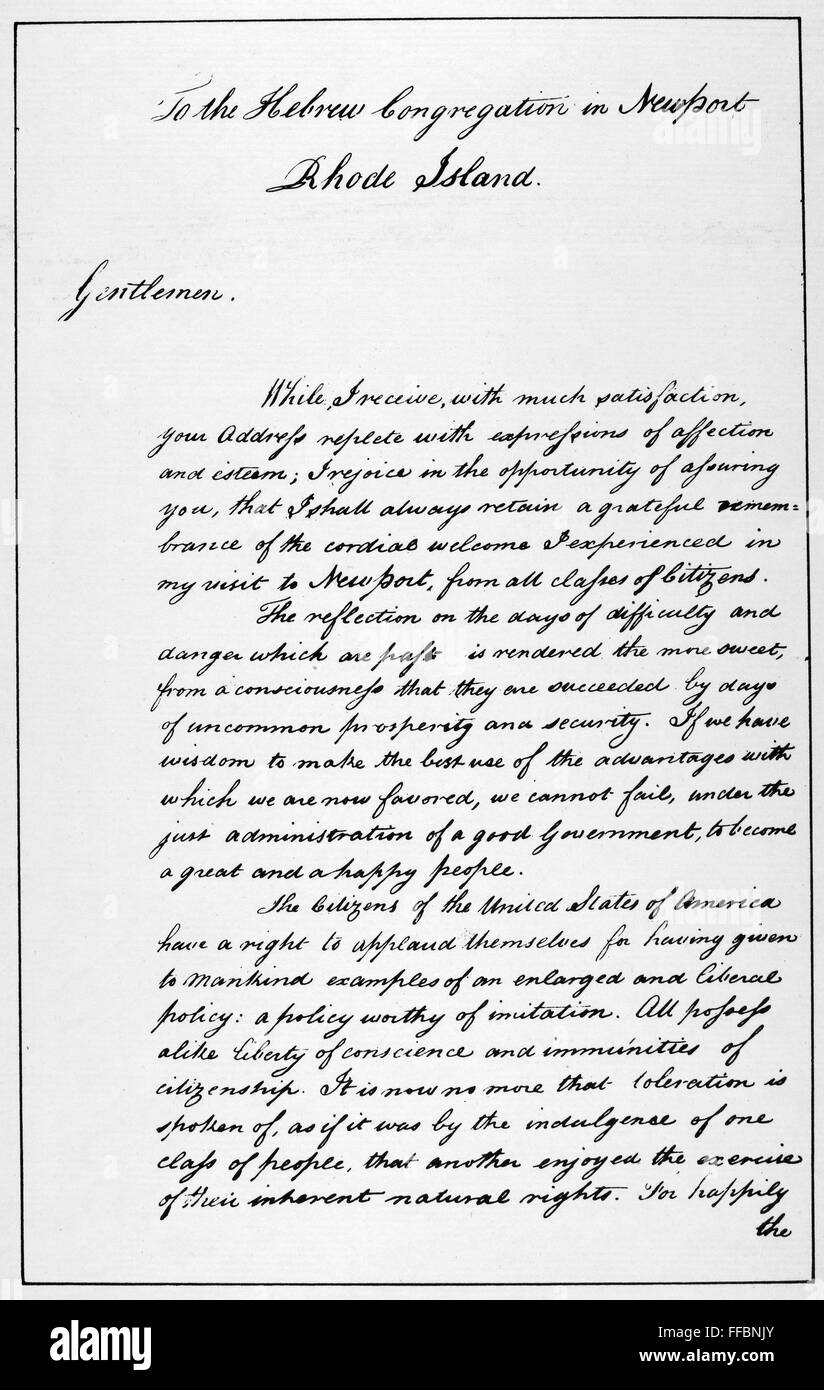 To the Hebrew Congregation in Newport
Rhode Island.
Gentlemen.
While, I receive, with much satisfaction,
your Address replete with expressions of affection
and esteem; I rejoice in the opportunity of assuring
you, that I shall always retain a grateful remem=
brance of the cordial welcome I experienced in
my visit to Newport, from all classes of Citizens.
The reflection on the days of difficulty and
danger which are past is rendered the more sweet,
from a consciousness that they are succeeded by days
of uncommon prosperity and security. If we have
wisdom to make the best use of the advantages with
which we are now favored, we cannot fail, under the
just administration of a good Government, to become
a great and a happy people.
The Citizens of the United States of America
have a right to applaud themselves for having given
to mankind examples of an enlarged and liberal
policy: a policy worthy of imitation. All possess
alike liberty of conscience and immunities of
citizenship. It is now no more that toleration is
spoken of, as if it was by the indulgence of one
class of people, that another enjoyed the exercise
of their inherent natural rights. For happily
the
alamy
Image ID: FFBNJY
www.alamy.com